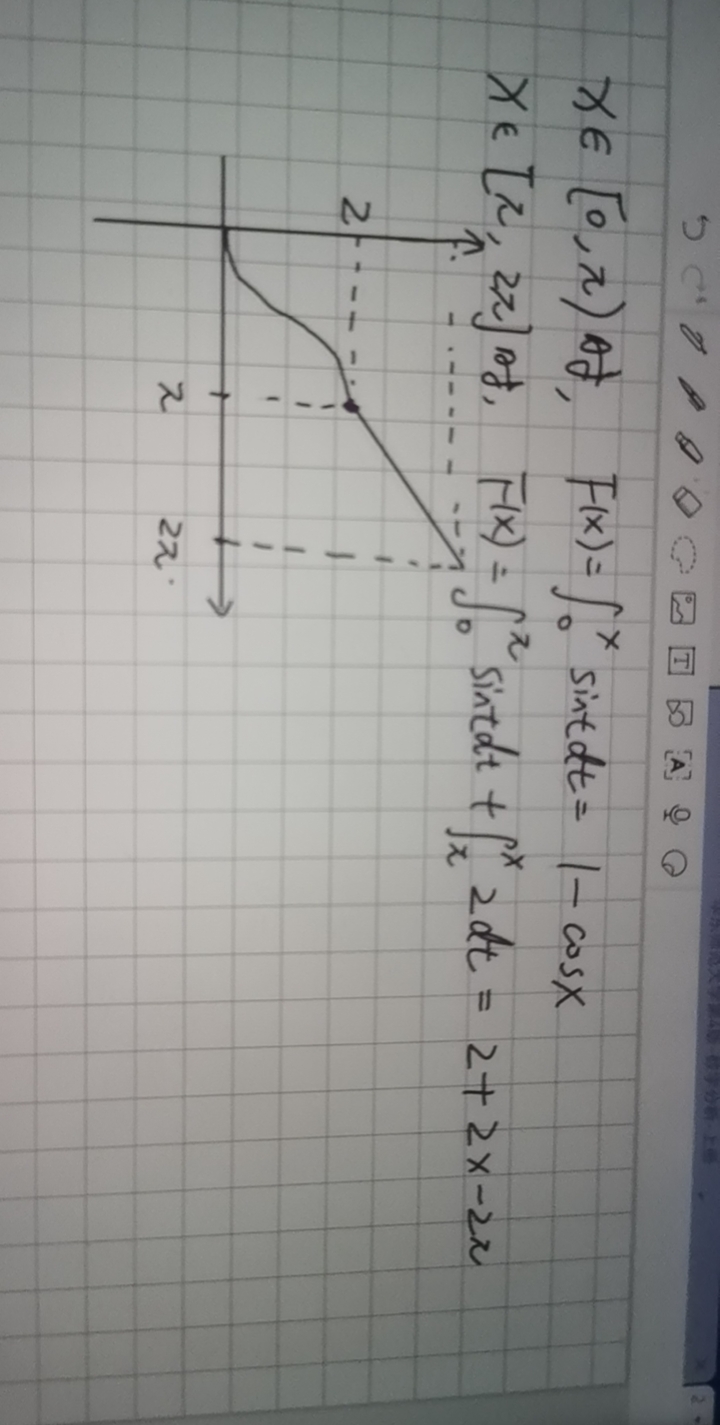 x∈[0,π)时, F(x)=∫₀ˣ sintdt= 1-cosx
x∈[π,2π]时, F(x)=∫₀^π sintdt+∫_π^x 2dt = 2+2x-2π
2
π
2π